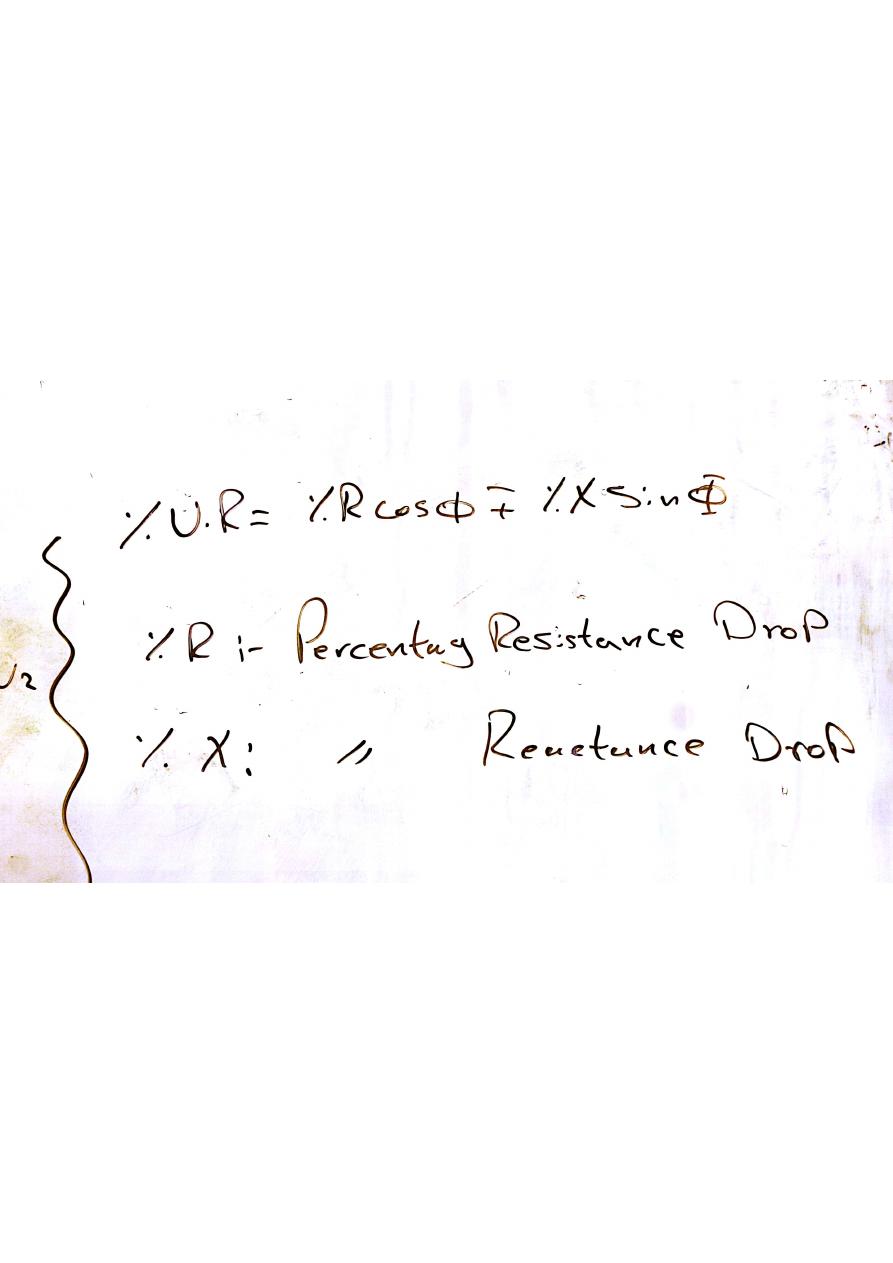 %U.R = %R cosΦ ∓ %X sinΦ
%R :- Percentag Resistance Drop
2
%X: " Reactance Drop